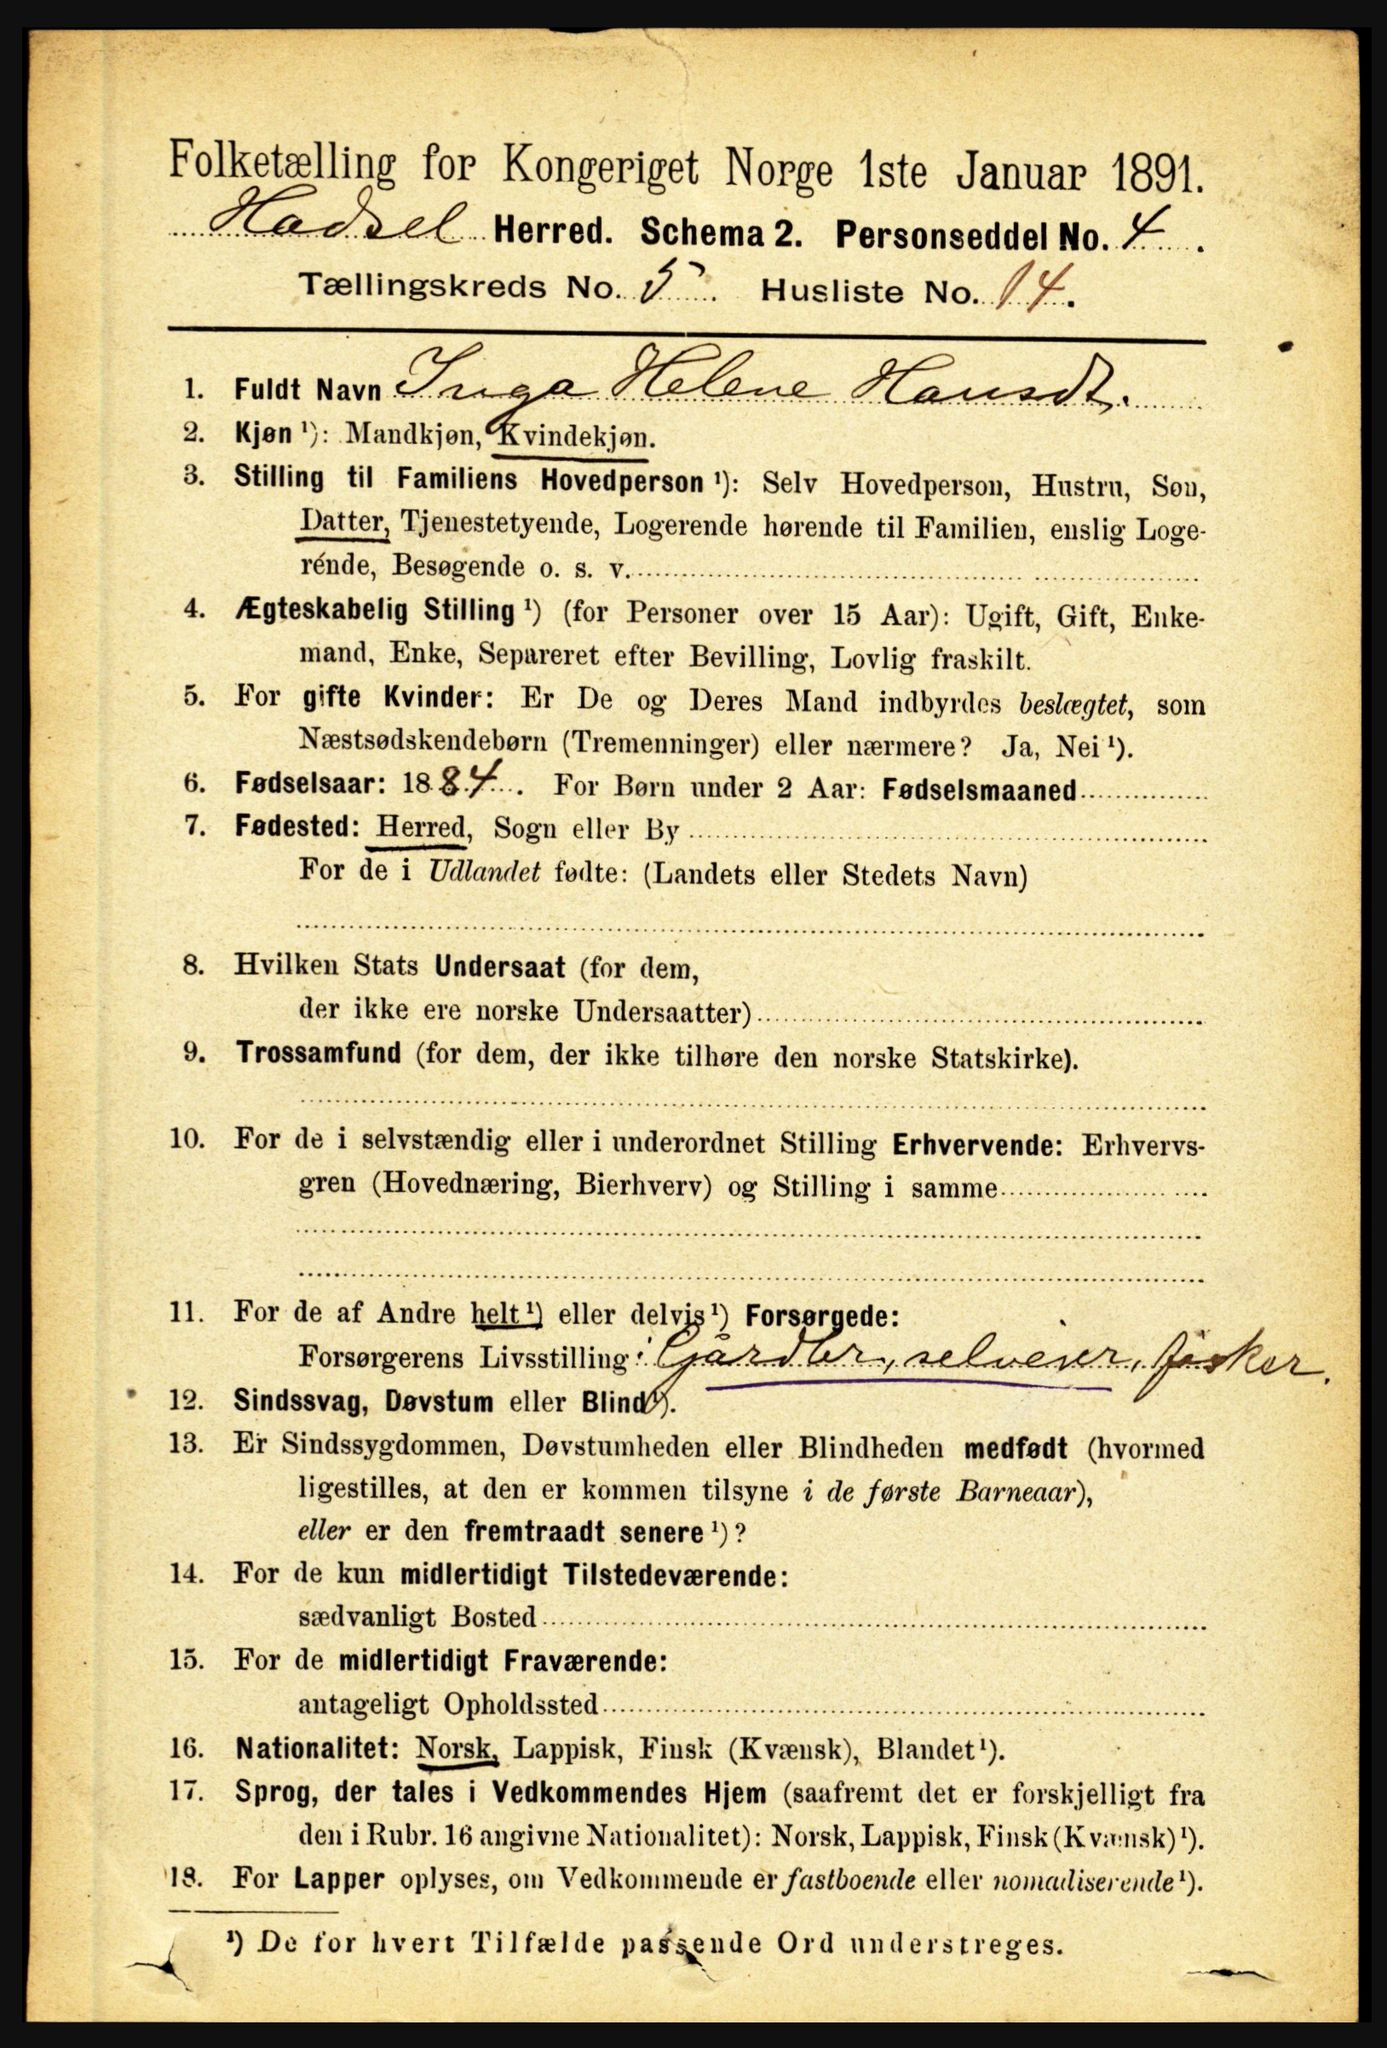 Folketælling for Kongeriget Norge 1ste Januar 1891.
Hadsel Herred. Schema 2. Personseddel No. 4.
Tællingskreds No. 5. Husliste No. 14.
1. Fuldt Navn Inga Helene Hansdt.
2. Kjøn ¹): Mandkjøn, Kvindekjøn.
3. Stilling til Familiens Hovedperson ¹): Selv Hovedperson, Hustru, Søn,
Datter, Tjenestetyende, Logerende hørende til Familien, enslig Loge-
rende, Besøgende o. s. v.
4. Ægteskabelig Stilling ¹) (for Personer over 15 Aar): Ugift, Gift, Enke-
mand, Enke, Separeret efter Bevilling, Lovlig fraskilt.
5. For gifte Kvinder: Er De og Deres Mand indbyrdes beslægtet, som
Næstsødskendebørn (Tremenninger) eller nærmere? Ja, Nei ¹).
6. Fødselsaar: 1884. For Børn under 2 Aar: Fødselsmaaned
7. Fødested: Herred, Sogn eller By
For de i Udlandet fødte: (Landets eller Stedets Navn)
8. Hvilken Stats Undersaat (for dem,
der ikke ere norske Undersaatter)
9. Trossamfund (for dem, der ikke tilhøre den norske Statskirke).
10. For de i selvstændig eller i underordnet Stilling Erhvervende: Erhvervs-
gren (Hovednæring, Bierhverv) og Stilling i samme
11. For de af Andre helt ¹) eller delvis ¹) Forsørgede:
Forsørgerens Livsstilling: Gårdbr, selveier, fisker.
12. Sindssvag, Døvstum eller Blind ¹).
13. Er Sindssygdommen, Døvstumheden eller Blindheden medfødt (hvormed
ligestilles, at den er kommen tilsyne i de første Barneaar),
eller er den fremtraadt senere ¹)?
14. For de kun midlertidigt Tilstedeværende:
sædvanligt Bosted
15. For de midlertidigt Fraværende:
antageligt Opholdssted
16. Nationalitet: Norsk, Lappisk, Finsk (Kvænsk), Blandet ¹).
17. Sprog, der tales i Vedkommendes Hjem (saafremt det er forskjelligt fra
den i Rubr. 16 angivne Nationalitet): Norsk, Lappisk, Finsk (Kvænsk) ¹).
18. For Lapper oplyses, om Vedkommende er fastboende eller nomadiserende ¹).
¹) De for hvert Tilfælde passende Ord understreges.